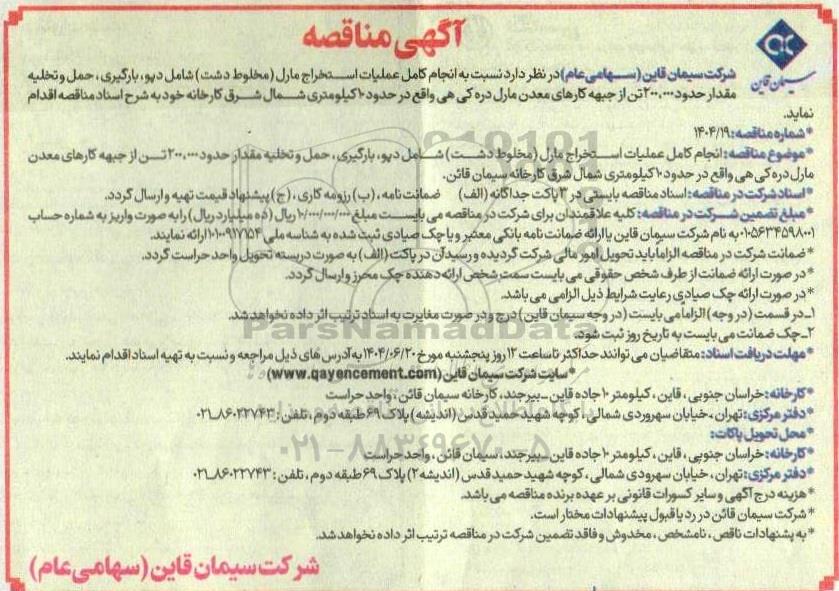 آگهی مناقصه
سیمان قاین
شرکت سیمان قاین (سهامی عام) در نظر دارد نسبت به انجام کامل عملیات استخراج مارل (مخلوط دشت) شامل دپو، بارگیری، حمل و تخلیه
مقدار حدود ۲۰۰,۰۰۰ تن از جبهه کارهای معدن مارل دره کی هی واقع در حدود ۱۰ کیلومتری شمال شرق کارخانه خود به شرح اسناد مناقصه اقدام
نماید.
*شماره مناقصه: ۱۴۰۴/۱۹
*موضوع مناقصه: انجام کامل عملیات استخراج مارل (مخلوط دشت) شامل دپو، بارگیری، حمل و تخلیه مقدار حدود ۲۰۰,۰۰۰ تن از جبهه کارهای معدن
مارل دره کی هی واقع در حدود ۱۰ کیلومتری شمال شرق کارخانه سیمان قائن.
*اسناد شرکت در مناقصه: اسناد مناقصه بایستی در ۳ پاکت جداگانه (الف) ضمانت نامه، (ب) رزومه کاری، (ج) پیشنهاد قیمت تهیه و ارسال گردد.
*مبلغ تضمین شرکت در مناقصه: کلیه علاقمندان برای شرکت در مناقصه می بایست مبلغ ۱۰/۰۰۰/۰۰۰/۰۰۰ ریال (ده میلیارد ریال) را به صورت واریز به شماره حساب
۰۱۰۵۶۳۴۵۹۸۰۰۱ به نام شرکت سیمان قاین یا ارائه ضمانت نامه بانکی معتبر و یا چک صیادی ثبت شده به شناسه ملی ۱۰۱۰۰۹۱۷۷۵۴ ارائه نمایند.
*ضمانت شرکت در مناقصه الزاماً باید تحویل امور مالی شرکت گردیده و رسید آن در پاکت (الف) به صورت دربسته تحویل واحد حراست گردد.
*در صورت ارائه ضمانت از طرف شخص حقوقی می بایست سمت شخص ارائه دهنده چک محرز و ارسال گردد.
*در صورت ارائه چک صیادی رعایت شرایط ذیل الزامی می باشد.
۱ـ در قسمت (در وجه) الزاما می بایست (در وجه سیمان قاین) درج و در صورت مغایرت به اسناد ترتیب اثر داده نخواهد شد.
ParsNamadData
۲ـ چک ضمانت می بایست به تاریخ روز ثبت شود.
*مهلت دریافت اسناد: متقاضیان می توانند حداکثر تا ساعت ۱۲ روز پنجشنبه مورخ ۱۴۰۴/۰۶/۲۰ به آدرس های ذیل مراجعه و نسبت به تهیه اسناد اقدام نمایند.
*سایت شرکت سیمان قاین (www.qayencement.com)
*کارخانه: خراسان جنوبی، قاین، کیلومتر ۱۰ جاده قاین ـ بیرجند، کارخانه سیمان قائن، واحد حراست
*دفتر مرکزی: تهران، خیابان سهروردی شمالی، کوچه شهید حمید قدس (اندیشه) پلاک ۶۹ طبقه دوم، تلفن: ۸۶۰۲۲۷۴۳ـ۰۲۱
*محل تحویل پاکات:
۰۲۱-۸۸۳۴۹۶۷۰-۵
*کارخانه: خراسان جنوبی، قاین، کیلومتر ۱۰ جاده قاین ـ بیرجند، سیمان قائن، واحد حراست
*دفتر مرکزی: تهران، خیابان سهرودی شمالی، کوچه شهید حمید قدس (اندیشه ۲) پلاک ۶۹ طبقه دوم، تلفن: ۸۶۰۲۲۷۴۳ـ۰۲۱
*هزینه درج آگهی و سایر کسورات قانونی بر عهده برنده مناقصه می باشد.
*شرکت سیمان قائن در رد یا قبول پیشنهادات مختار است.
*به پشنهادات ناقص، نامشخص، مخدوش و فاقد تضمین شرکت در مناقصه ترتیب اثر داده نخواهد شد.
شرکت سیمان قاین (سهامی عام)